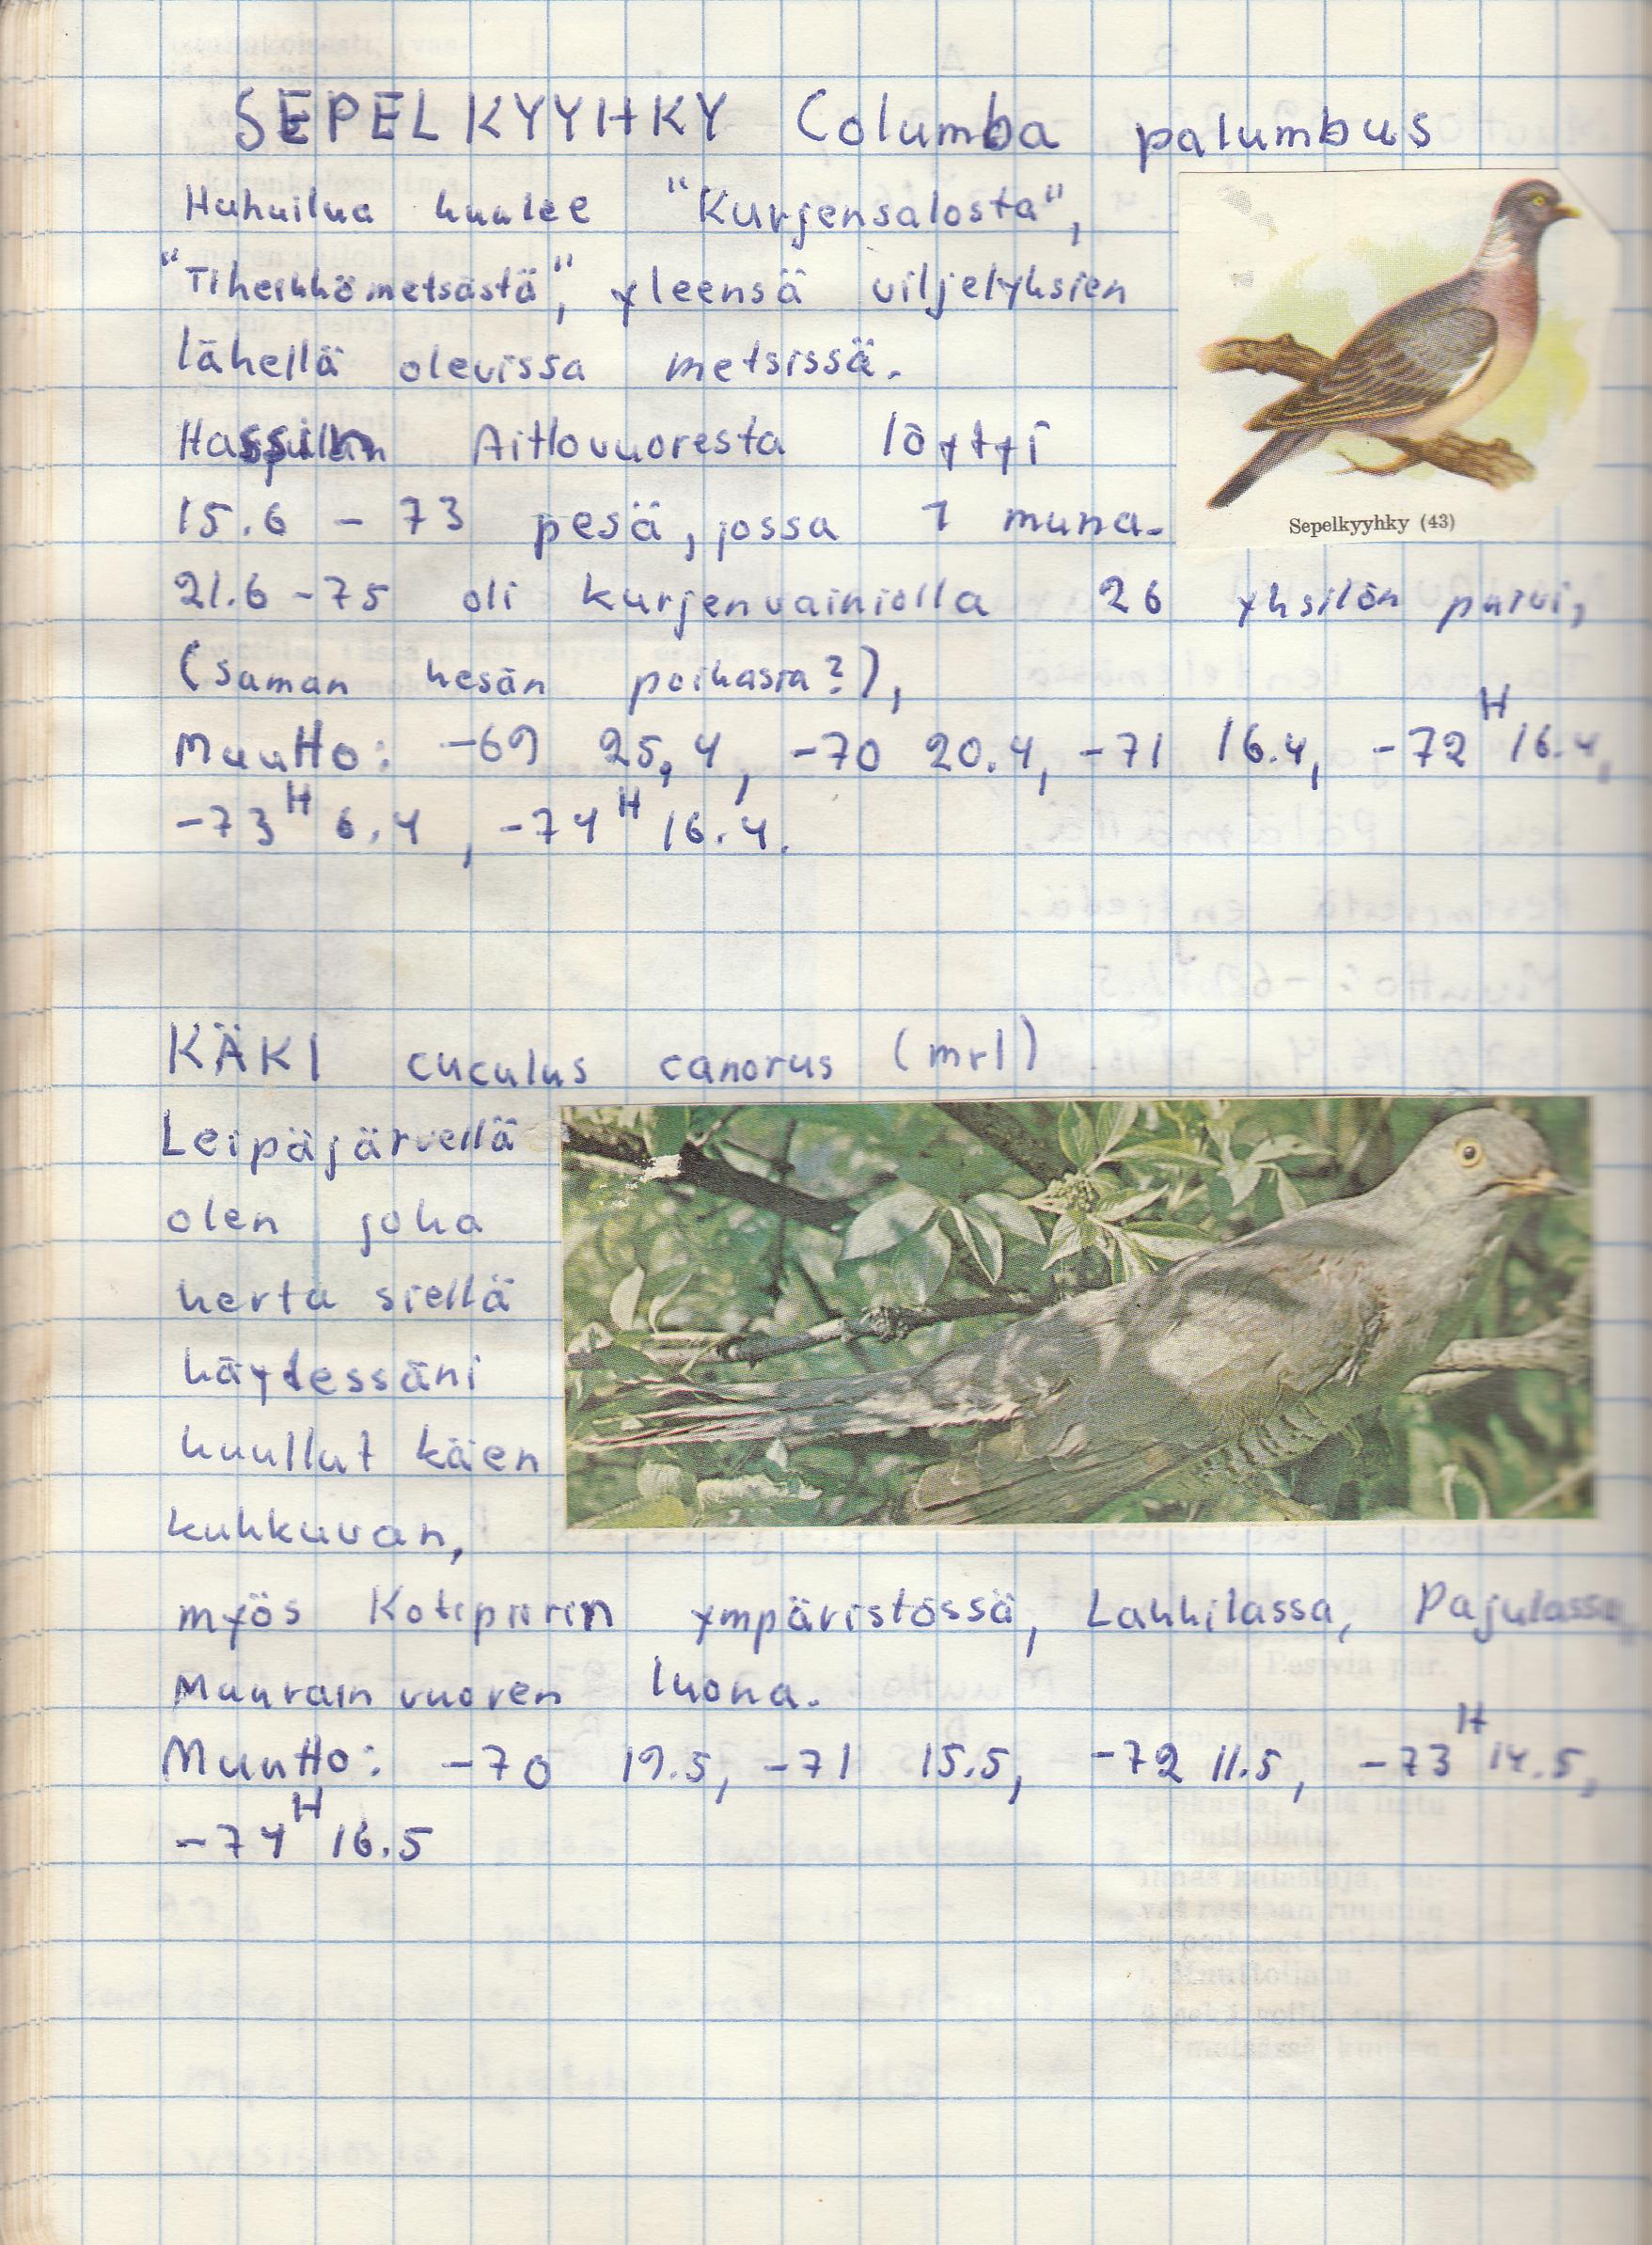 SEPELKYYHKY Columba palumbus
Huhuilua kuulee "Kurjensalosta",
"Tiheikkömetsästä", yleensä viljelyksien
lähellä olevissa metsissä.
Aittovuoresta löytyi
15.6 - 73 pesä, jossa 1 muna.
Sepelkyyhky (43)
21.6 -75 oli kurjenvainiolla 26 yksilön parvi,
(saman kesän poikasia?),
Muutto: -69 25.4, -70 20.4, -71 16.4, -72 H 16.4,
-73 H 6.4, -74 H 16.4.
KÄKI cuculus canorus (mrl)
Leipäjärvellä
olen joka
kerta siellä
käydessäni
kuullut käen
kukkuvan,
myös Kotipiirin ympäristössä, Lahhilassa, Pajulassa,
Muurainvuoren luona.
Muutto: -70 19.5, -71 15.5, -72 11.5, -73 H 14.5,
-74 H 16.5